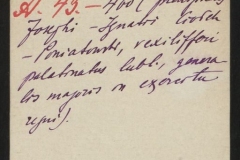 N. 43.—400
Josephi — Ignatii
— Poniatowski, vexilliferi
palatinatus lubl., genera
lis majoris in exercitu
regni).